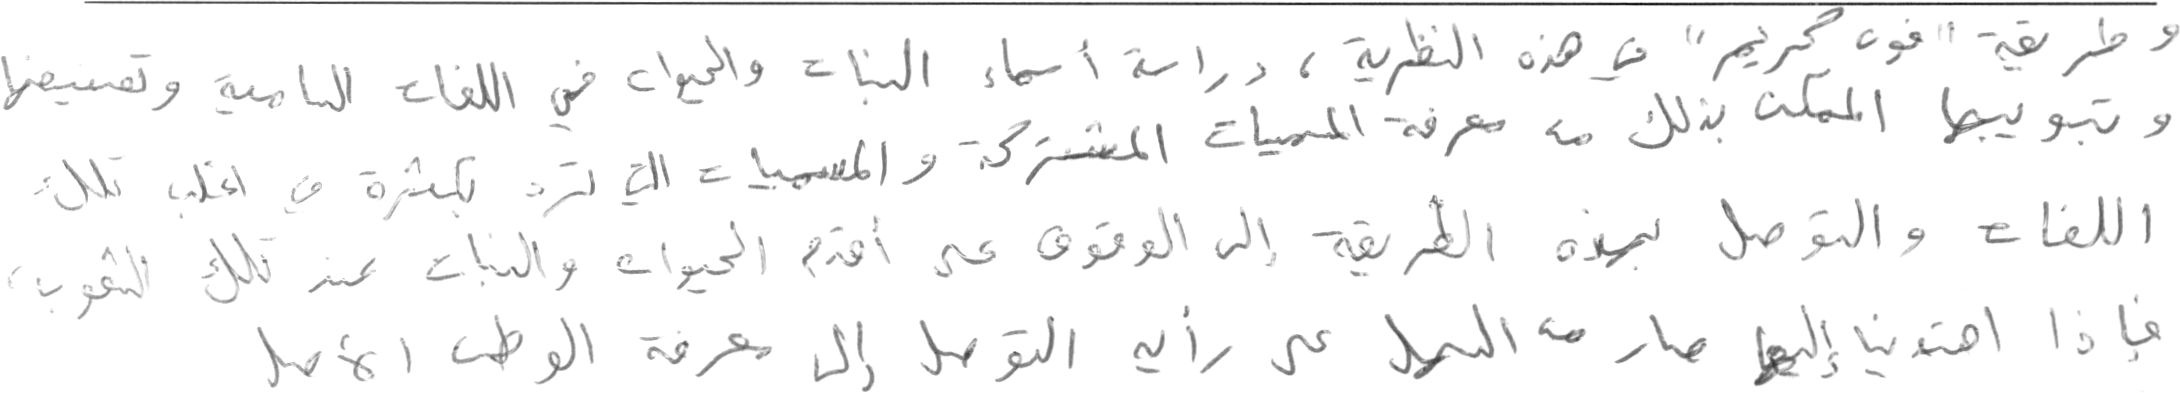 وطريقة "فون كريمر" في هذه النظرية، دراسة أسماء النبات والحيوان في اللغات السامية وتصنيفها
وتبويبها للتمكن بذلك من معرفة المسميات المشتركة والمسميات التي ترد بكثرة في اغلب تلك
اللغات والتوصل بهذه الطريقة إلى الوقوف على أقدم الحيوان والنبات عند تلك الشعوب،
فإذا اهتدينا إليها صار من السهل على رأيه التوصل إلى معرفة الوطن الأصل